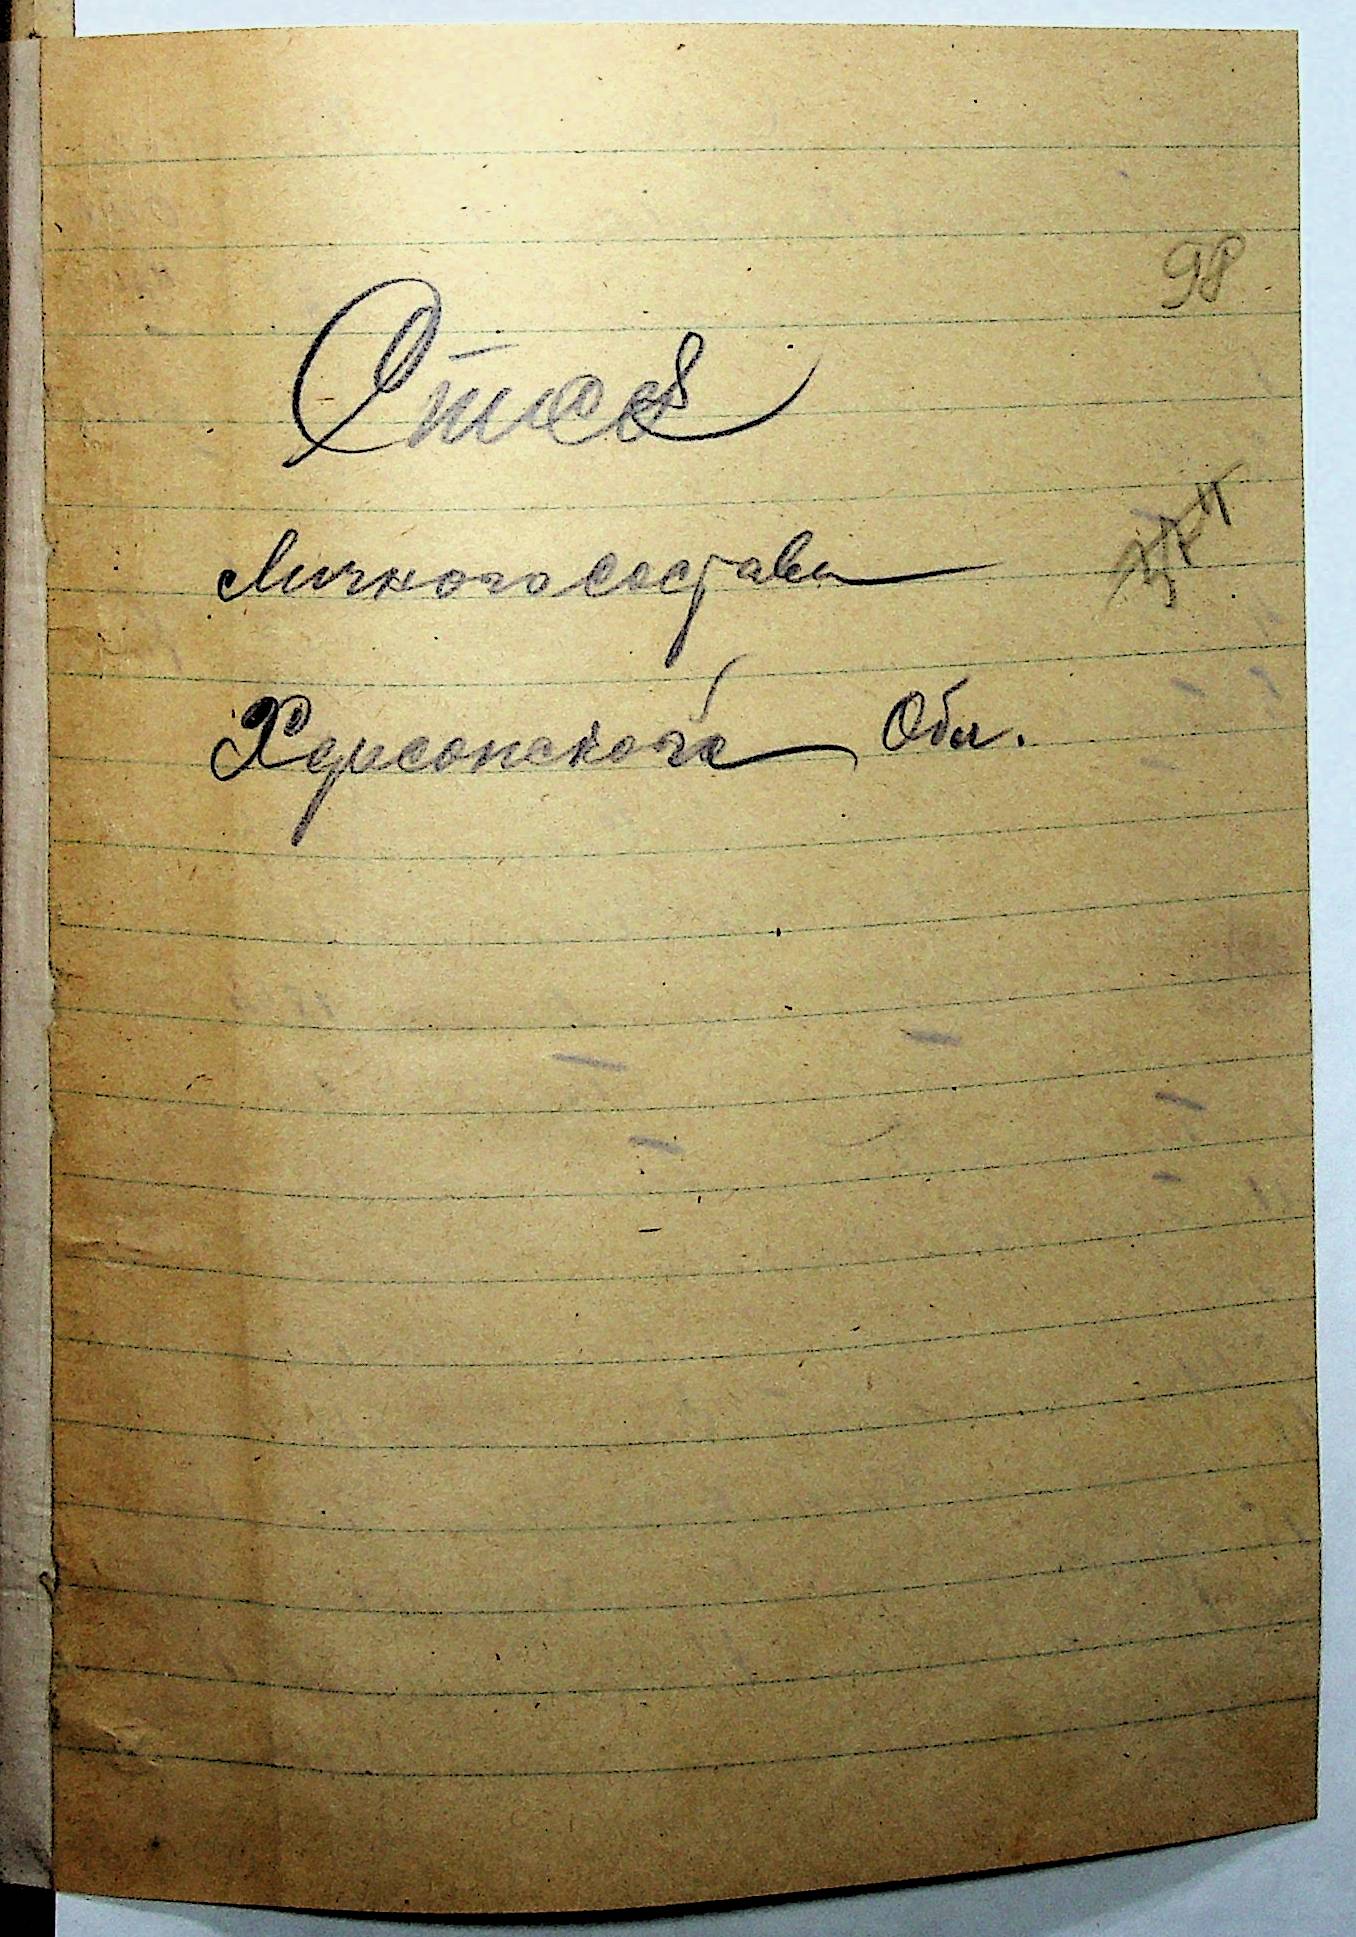 98
Список
Личного состава
Херсонской Обл.